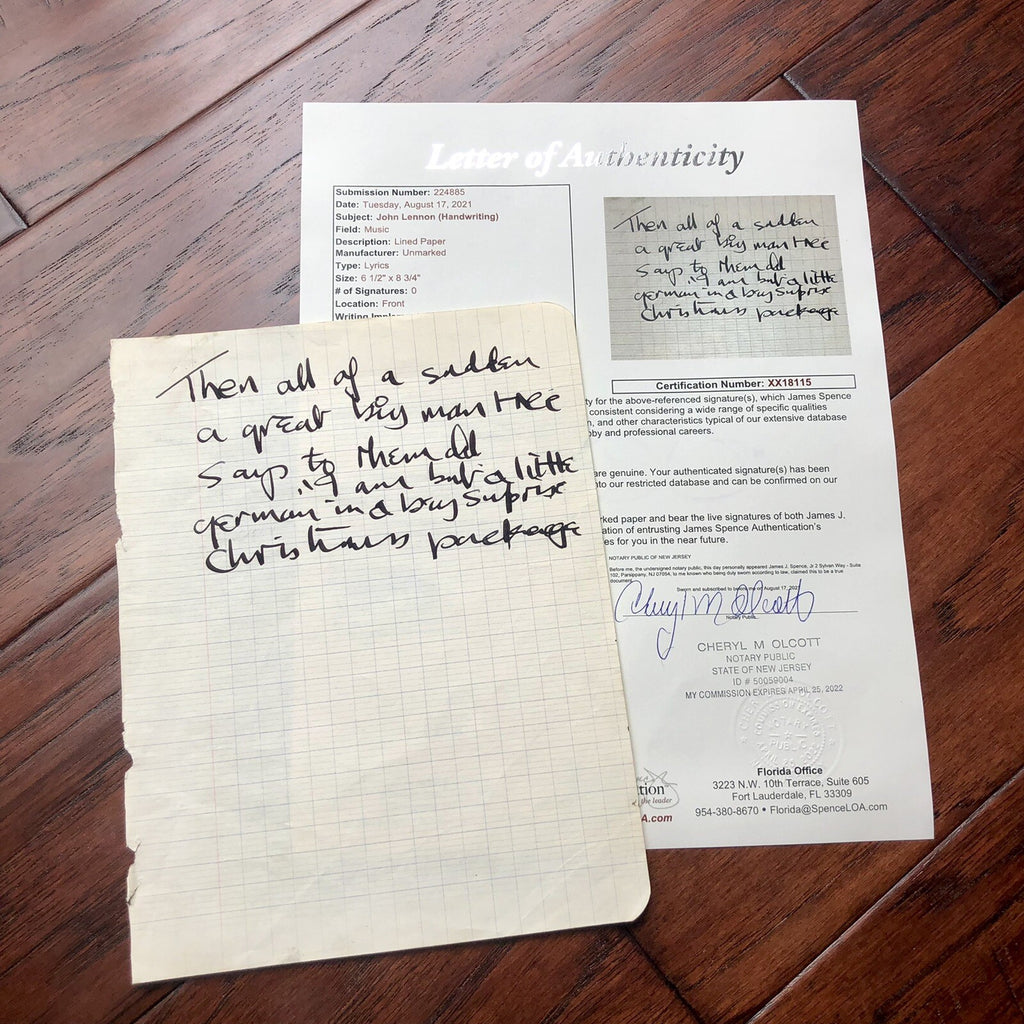 Letter of Authenticity
Submission Number: 224885
Date: Tuesday, August 17, 2021
Subject: John Lennon (Handwriting)
Field: Music
Description: Lined Paper
Manufacturer: Unmarked
Type: Lyrics
Size: 6 1/2" x 8 3/4"
# of Signatures: 0
Location: Front
Then all of a sudden
a great big man tree
says to them all
"I am but a little
german in a bag suprise
christmas package
Certification Number: XX18115
ty for the above-referenced signature(s), which James Spence
consistent considering a wide range of specific qualities
n, and other characteristics typical of our extensive database
bby and professional careers.
are genuine. Your authenticated signature(s) has been
nto our restricted database and can be confirmed on our
rked paper and bear the live signatures of both James J.
ation of entrusting James Spence Authentication's
es for you in the near future.
NOTARY PUBLIC OF NEW JERSEY
Before me, the undersigned notary public, this day personally appeared James J. Spence, Jr 2 Sylvan Way - Suite
102, Parsippany, NJ 07054, to me known who being duly sworn according to law, claimed this to be a true
document.
Sworn and subscribed to before me on August 17, 2021
Cheryl M Olcott
Notary Public
CHERYL M OLCOTT
NOTARY PUBLIC
STATE OF NEW JERSEY
ID # 50059004
MY COMMISSION EXPIRES APRIL 25, 2022
Florida Office
3223 N.W. 10th Terrace, Suite 605
Fort Lauderdale, FL 33309
954-380-8670 • Florida@SpenceLOA.com
tion
the leader
A.com
Then all of a sudden
a great big man tree
says to them all
"I am but a little
german in a bag suprise
christmas package